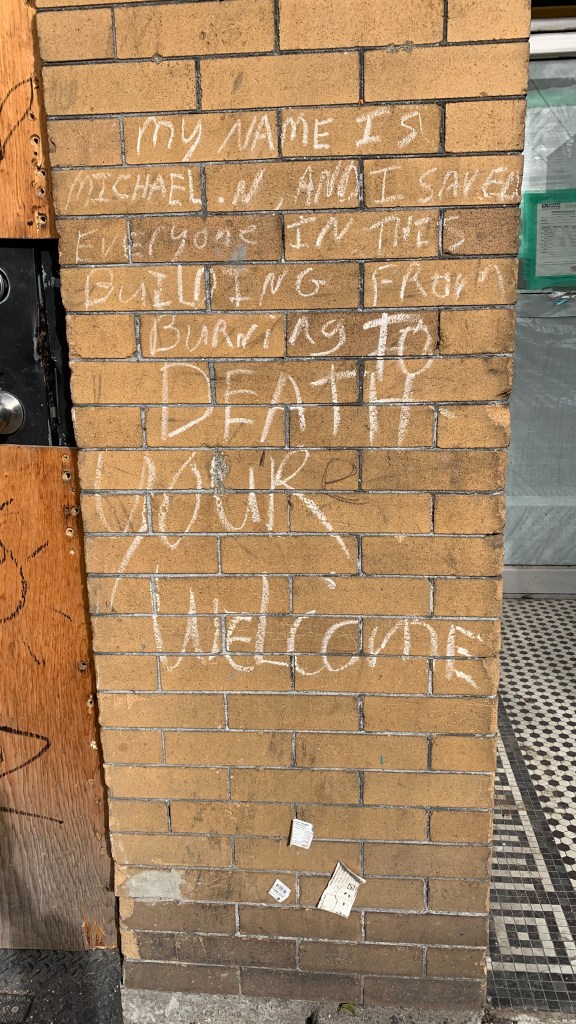 MY NAME IS
MICHAEL.N, AND I SAVED
EVERYONE IN THIS
BUILDING FROM
BURNING TO
DEATH
YOUR e
WELCOME